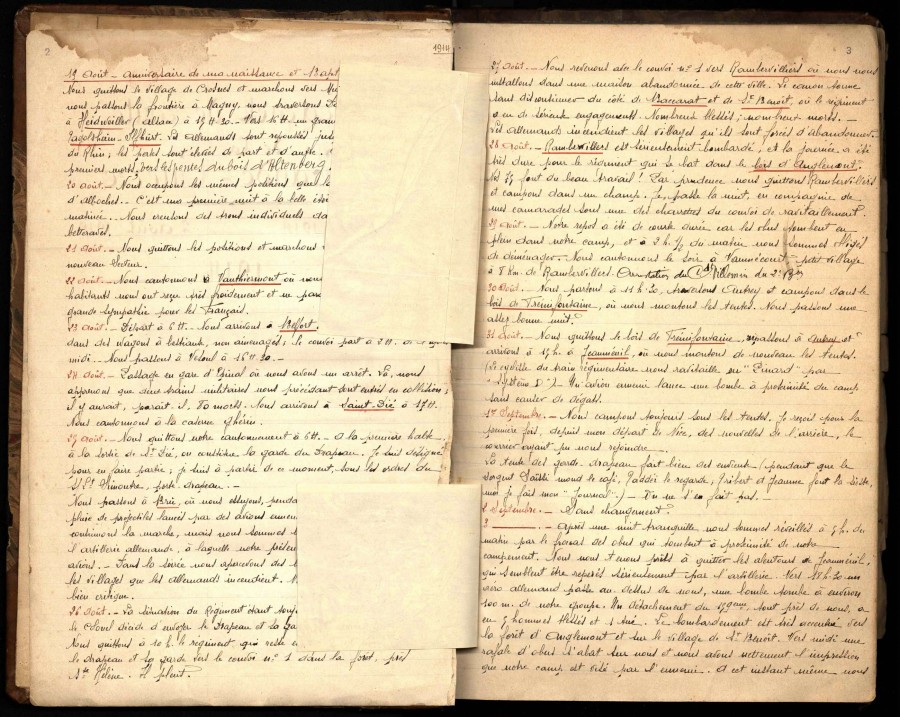 2
1914
19 Août. - Anniversaire de ma naissance et Bapt
Nous quittons le village de Croesnes et marchons vers
nous passons la frontière à Magny, nous traversons
à Heidwiller (Alsace) à 15 H 30. - Vers 16 H un gran
Tagolsheim - Les Allemands sont repoussés jus
du Rhin ; les pertes sont élevées de part et d'autre.
premiers morts, vers les pentes du bois d'Altenberg.
20 Août. - Nous occupons les mêmes positions que le
d'alboches. - C'est ma première nuit à la belle étoi
matinée. Nous creusons des trous individuels da
betteraves.
21 Août. - Nous quittons les positions et marchons
nouveau secteur.
22 Août. - Nous cantonnons à Vauthiermont où nous
habitants nous ont reçu très froidement et ne para
grande sympathie pour les Français.
23 Août. - Départ à 6 H. - Nous arrivons à Belfort.
dans des wagons à bestiaux, non aménagés ; le convoi part à 2 H. de l'après
midi. - Nous passons à Vesoul à 16 H 30. -
24 Août. - Passage en gare d'Epinal où nous avons un arrêt. Là, nous
apprenons que deux trains militaires nous précédant sont entrés en collision ;
il y aurait, paraît-il, 70 morts. Nous arrivons à Saint-Dié à 17 H.
Nous cantonnons à la caserne
25 Août. - Nous quittons notre cantonnement à 6 H. - A la première halte,
à la sortie de St Dié, on constitue la garde du Drapeau. Je suis désigné
pour en faire partie ; je suis à partir de ce moment, sous les ordres du
S/Lt porte-drapeau. -
Nous passons à où nous essuyons, penda
pluie de projectiles lancés par des avions ennem
continuons la marche, mais nous sommes
l'artillerie allemande, à laquelle notre présen
avions. - Dans la soirée nous apercevons des
les villages que les allemands incendient. N
bien critique.
26 Août. - La situation du Régiment étant
le Colonel décide d'envoyer le Drapeau et sa ga
Nous quittons à 10 h. le régiment, qui reste
le drapeau et la garde vers le convoi n° 1 dans la forêt, près
Ste Hélène. - Il pleut.
3
27 Août. - Nous revenons avec le convoi n° 1 vers Rambervillers où nous nous
installons dans une maison abandonnée de cette ville. Le canon tonne
sans discontinuer du côté de Baccarat et de St Benoît, où le régiment
a eu de sérieux engagements. Nombreux blessés ; nombreux morts. -
Les Allemands incendient les villages qu'ils sont forcés d'abandonner.
28 Août. - Rambervillers est sérieusement bombardé, et la journée a été
très dure pour le régiment qui se bat dans le bois d'Anglemont.
Nos 75 font du beau travail ! Par prudence nous quittons Rambervillers
et campons dans un champ. Je passe la nuit, en compagnie de
mes camarades sous une des charrettes du convoi de ravitaillement.
29 Août. - Notre repos a été de courte durée car les obus tombent en
plein dans notre camp, et à 2 h. 1/2 du matin nous sommes obligés
de déménager. Nous cantonnons le soir à Vannécourt - petit village
à 8 km. de Rambervillers. Citation du Ct Villemin du 2e Bon
30 Août. Nous partons à 11 h 30, traversons Autrey et campons dans le
bois de Trémifontaine, où nous montons les tentes. Nous passons une
assez bonne nuit.
31 Août. - Nous quittons le bois de Trémifontaine, repassons à Autrey et
arrivons à 15 h. à Jeanménil, où nous montons de nouveau les tentes.
Le cycliste du train régimentaire nous ravitaille en "Pinard" par
"système D". Un avion ennemi lance une bombe à proximité du camp
sans causer de dégâts.
1er Septembre. - Nous campons toujours sous les tentes. Je reçois pour la
première fois, depuis mon départ de Nice, des nouvelles de l'arrière, le
courrier ayant pu nous rejoindre. -
La tente des gardes drapeau fait bien des envieux (pendant que le
sergent moud le café, regarde, Tribert et Jeanne font la sieste,
moi je fais mon "Journal".) - On ne s'en fait pas. -
2 Septembre. - Sans changement.
3 ———. - Après une nuit tranquille nous sommes réveillés à 5 h. du
matin par le fracas des obus qui tombent à proximité de notre
campement. Nous nous tenons prêts à quitter les alentours de Jeanménil,
qui semblent être repérés sérieusement par l'artillerie. Vers 18 h 30 un
aéro allemand passe au dessus de nous, une bombe tombe à environ
100 m. de notre groupe. Un détachement du ème, tout près de nous, a
eu 5 hommes blessés et 1 tué. Le bombardement est très accentué vers
la forêt d'Anglemont et sur le village de St Benoît. Vers midi une
rafale d'obus s'abat sur nous et nous avons nettement l'impression
que notre camp est visé par l'ennemi. A cet instant même nous